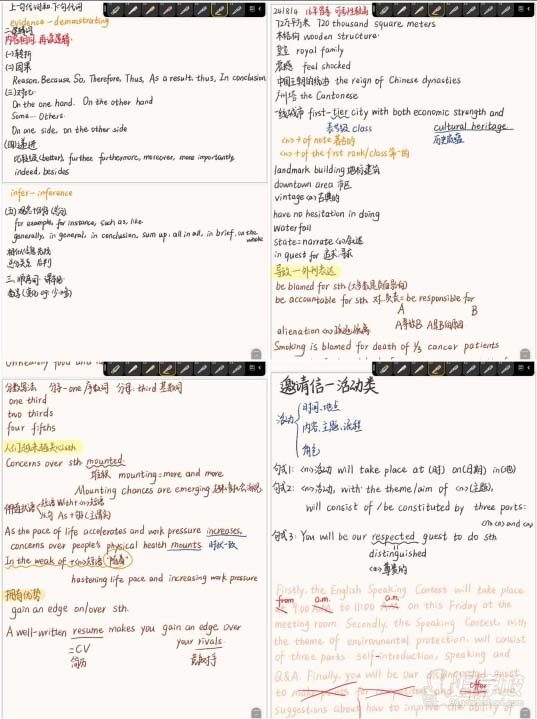 上句代词和下句代词
evidence-demonstrating
二.逻辑词
(一)转折
(二)因果
Reason, Because, So, Therefore, Thus, As a result, thus, In conclusion
(三)对比
On the one hand. On the other hand
Some... Others.
On one side, on the other side
(四)递进
比较级(better), further furthermore, moreover, more importantly,
indeed, besides
infer-inference
for example, for instance, such as, like
generally, in general, in conclusion, sum up, all in all, in brief, on the whole
24/8/4
72万平方米 720 thousand square meters
木结构 wooden structure
皇室 royal family
震撼 feel shocked
中国王朝的统治 the reign of Chinese dynasties
广州塔 the Cantonese
一线城市 first-tier city with both economic strength and
class
cultural heritage
历史底蕴
<n> + of note 著名的
<n> + of the first rank/class 第一的
landmark building 地标建筑
downtown area 市区
vintage <a> 古典的
have no hesitation in doing
waterfall
state=narrate
in quest for 追求.寻求
导致一外刊表达
be blamed for sth
be accountable for sth 对..负责= be responsible for
A B
alienation <n>
A导致B
Smoking is blamed for death of 1/3 cancer patients
分数写法 分子-one 序数词 分母: third 基数词
one third
two thirds
four fifths
Concerns over sth mounted.
mounting = more and more
Mounting chances are emerging
As the pace of life accelerates and work pressure increases,
concerns over people's physical health mounts 时状一致
In the weak of +<n>短语 "随着"
hastening life pace and increasing work pressure
拥有优势
gain an edge on/over sth.
A well-written resume makes you gain an edge over
=CV
简历
your rivals
竞争对手
邀请信一活动类
活动
时间、地点
内容、主题、流程
角色
句式1: <n>活动 will take place at (时) on(日期) in(地)
句式2: <n>活动, with the theme/aim of <n>(主题),
will consist of /be constituted by three parts:
<n> <n> and <n>
句式3: You will be our respected guest to do sth
distinguished
<a> 尊贵的
Firstly, the English Speaking Contest will take place
from a.m. a.m.
9:00 to 11:00 on this Friday at the
meeting room. Secondly, the Speaking Contest, with
the theme of environmental protection, will consist
of three parts: self-introduction, speaking and
Q&A. Finally, you will be our distinguished guest
to offer some
suggestions about how to improve the ability of